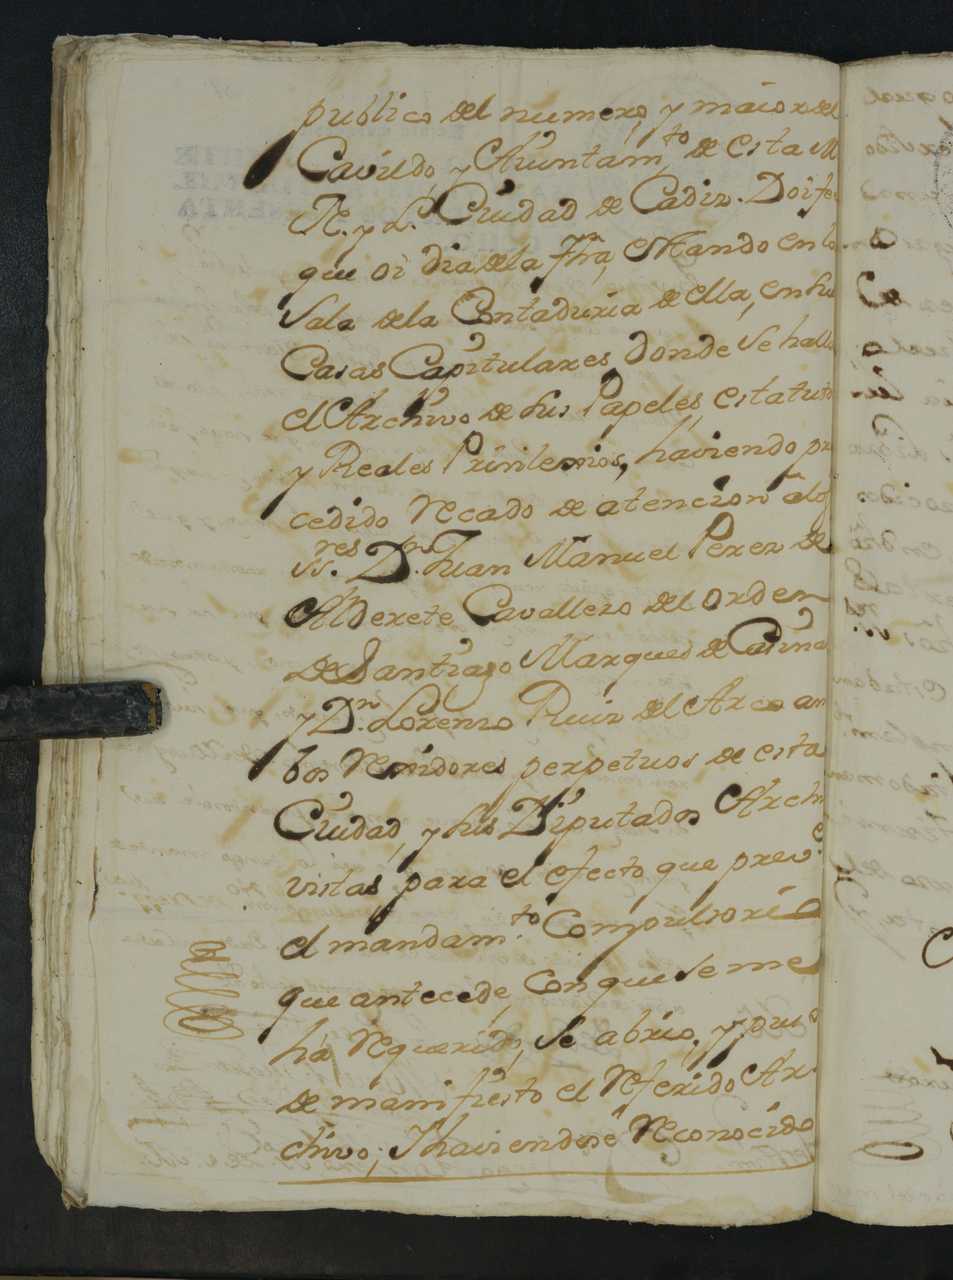 publico del numero, y maior del
Cavildo, y Aiuntam.to de esta M.
N. y L. Ciudad de Cadiz. Doi fe
que oi dia de la fha, estando en la
Sala de la Contaduria de ella, en sus
Casas Capitulares, donde se halla
el Archivo de sus Papeles, estatutos
y Reales Privilexios, haviendo pre
cedido recado de atencion â los
SS.res D.n Juan Manuel Perez de
Alderete Cavallero del orden
de Santiago Marques de Casinas
y D.n Lorenzo Ruiz del Arco am
bos Rexidores perpetuos de esta
Ciudad, y sus Diputados Archi
vistas para el efecto que prev.e
el mandam.to Compulsorio
que antecede, con que se me
ha requerido, se abrio, y puso
de manifiesto el referido Ar
chivo; Y haviendose reconocido